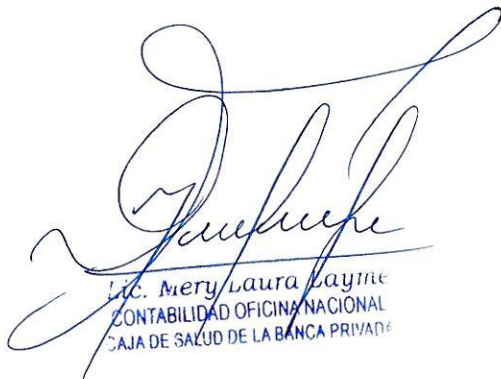 Lic. Mery Laura Layme
CONTABILIDAD OFICINA NACIONAL
CAJA DE SALUD DE LA BANCA PRIVADA